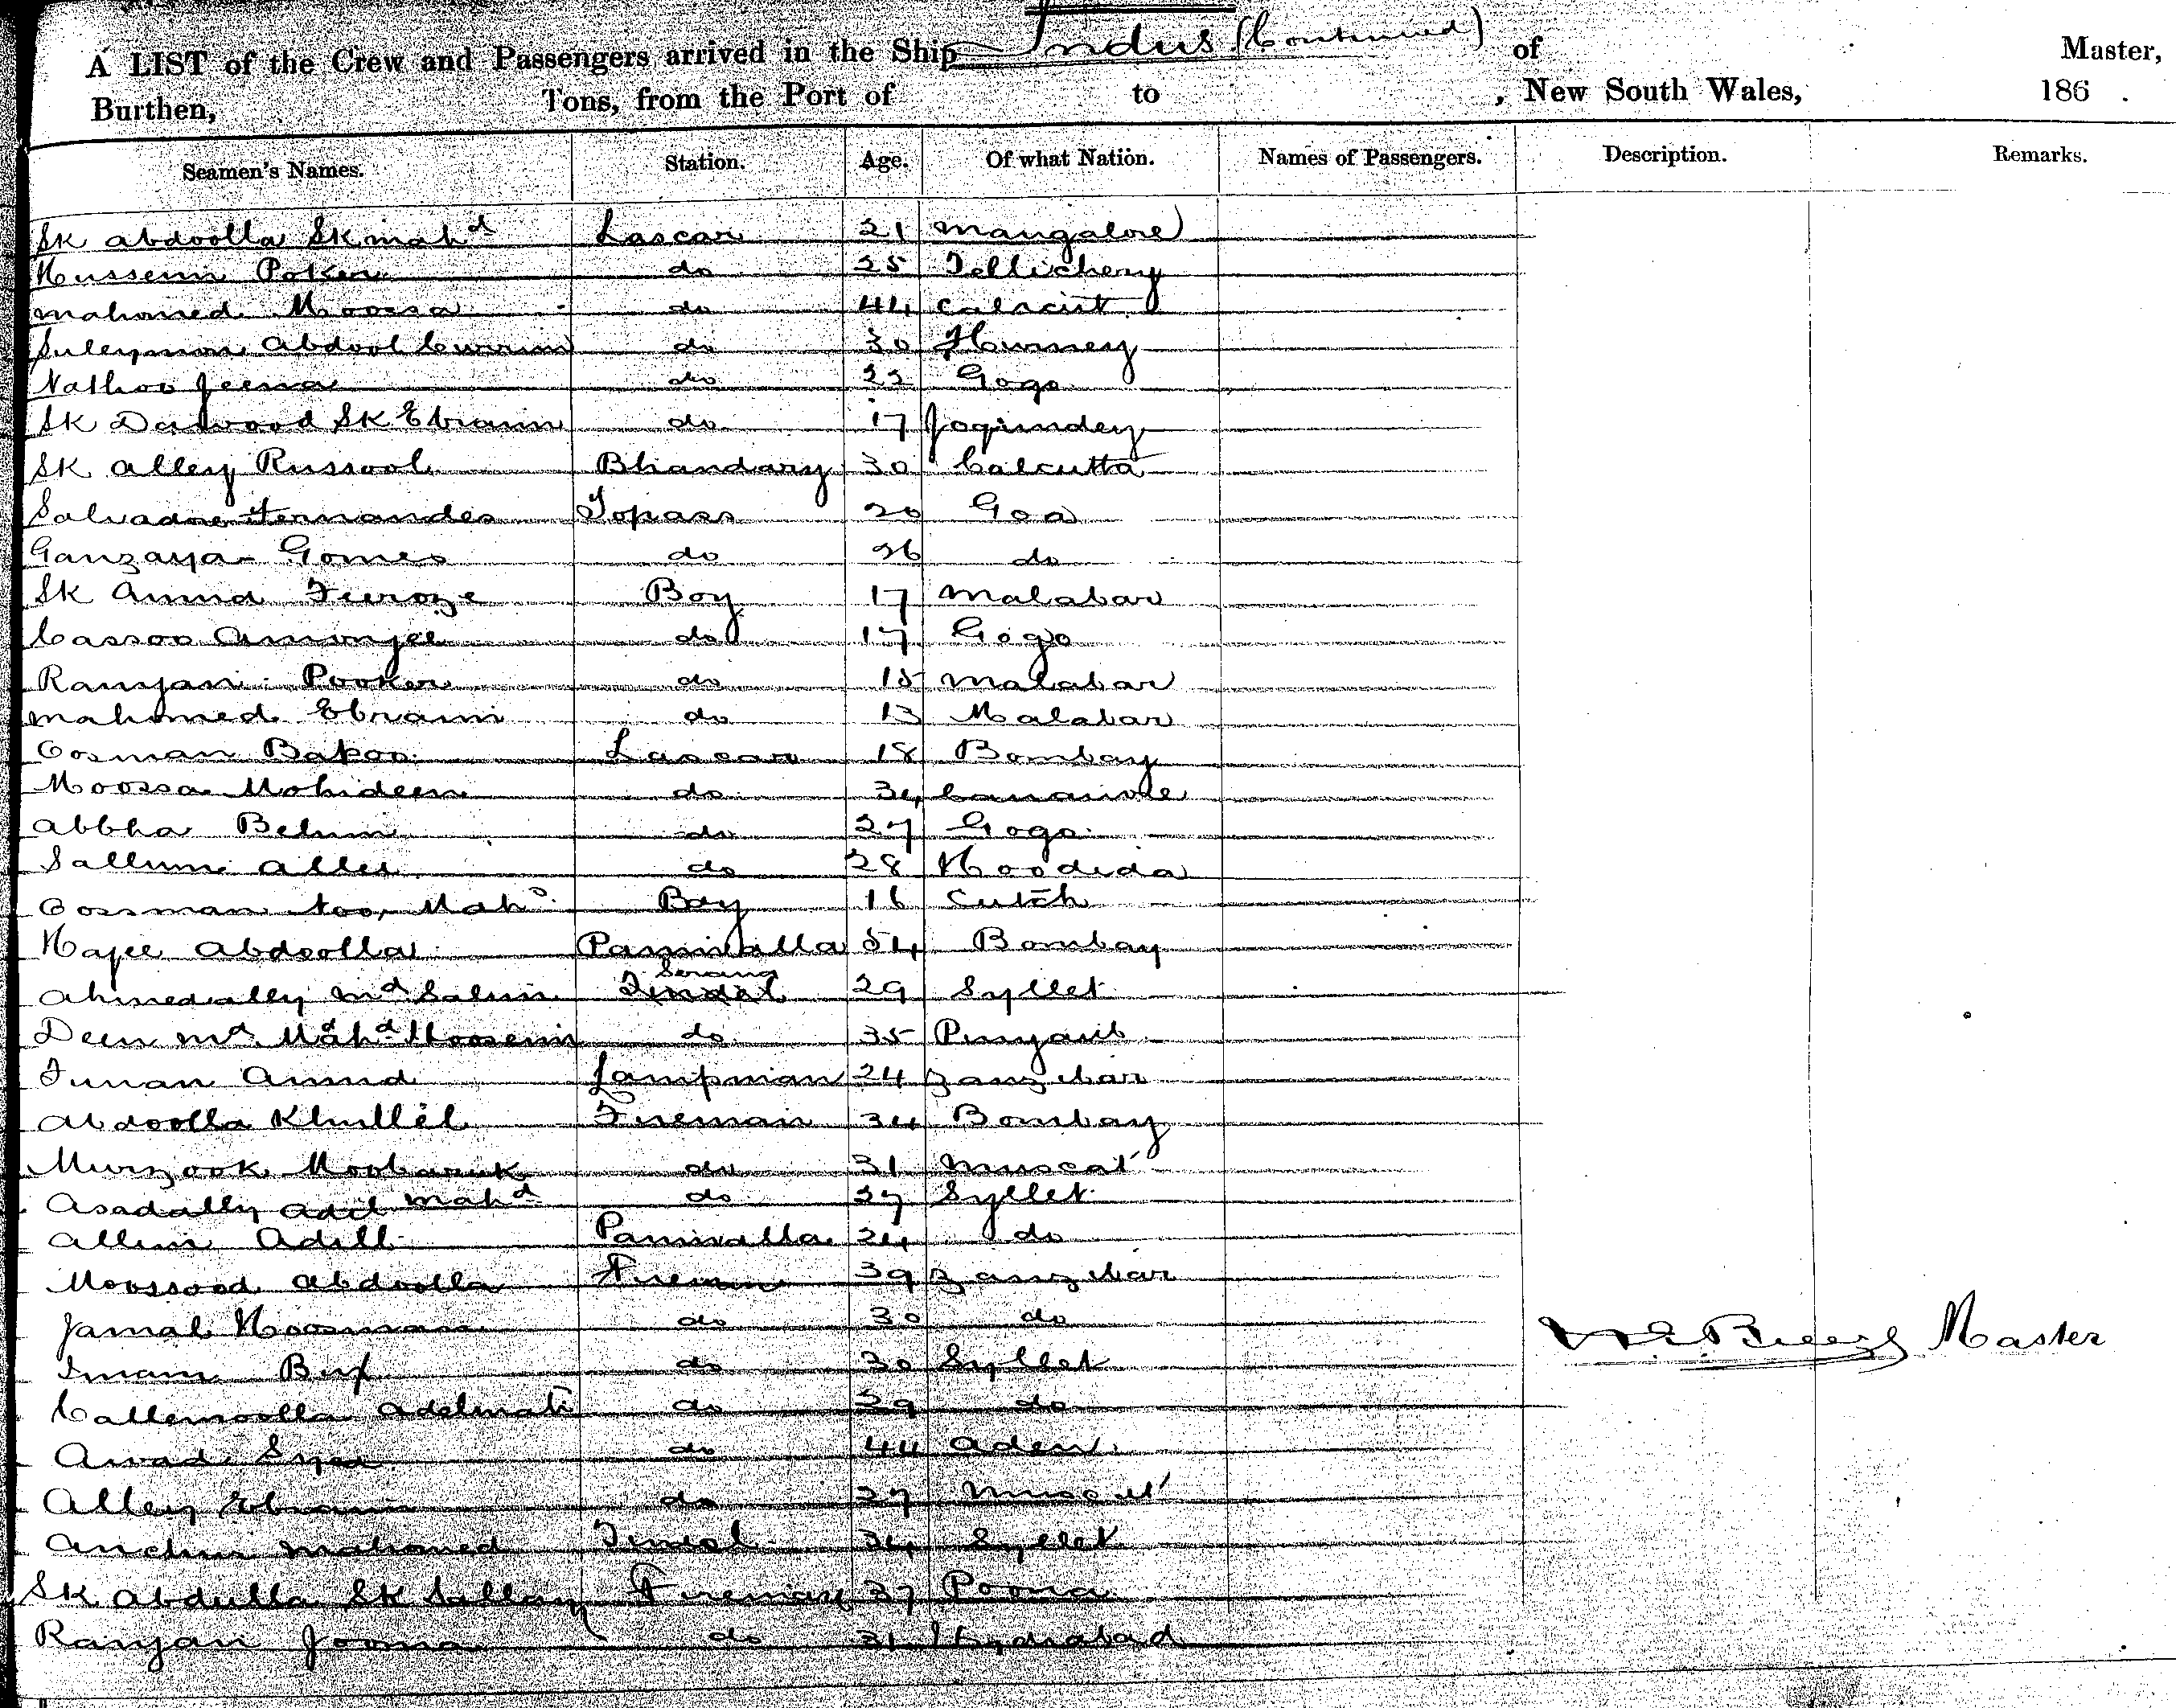 A LIST of the Crew and Passengers arrived in the Ship Indus (Continued) of Master,
Burthen, Tons, from the Port of to , New South Wales, 186 .
Seamen's Names. Station. Age. Of what Nation. Names of Passengers. Description. Remarks.
Sk abdoolla Sk mahd Lascar 21 Mangalore
Hussein Poker do 25 Tellichery
mahomed Moossa do 44 Calicut
Suleyman Abdool Currim do 30 Hurney
Nathoo Jeena do 22 Gogo
Sk Dawood Sk Ebraim do 17 Joginndey
Sk alley Russool Bhandary 30 Calcutta
Salvadore Fernandes Topass 20 Goa
Ganzaya Gomes do 26 do
Sk Amud Feeroze Boy 17 Malabar
Cassoo Amonjee do 17 Gogo
Ramjan Pooker do 15 Malabar
mahomed Ebraim do 13 Malabar
Oosman Bakoo Lascar 18 Bombay
Moossa Mohideen do 34 Cananore
abbha Behim do 27 Gogo
Sallum Alles do 28 Hoodida
Oossman Mahd Boy 16 Cutch
Hajee Abdoolla Paniwalla 54 Bombay
Serang
Ahmedally Md Salim Tindel 29 Syllet
Deen Md Mahd Hoosein do 35 Punjaub
Amud Lampman 24 Zanzibar
Abdoolla Khullel Fireman 34 Bombay
Murzook Moobaruk do 31 Muscat
Asadally Adil Mahd do 37 Syllet
Allim Adill Paniwalla 24 do
Moossood Abdoolla Fireman 39 Zanzibar
Jamal Hoosman do 30 do
W E Breezy Master
Imam Bux do 30 Syllet
Callemoolla Adelmah do 29 do
Awad Syea do 44 Aden
Alley Ebraim do 27 Muscat
mahomed Tindel 34 Syllet
Sk Abdulla Sk Fireman 37 Poona
Ramjan Jooma do 31 Hydrabad